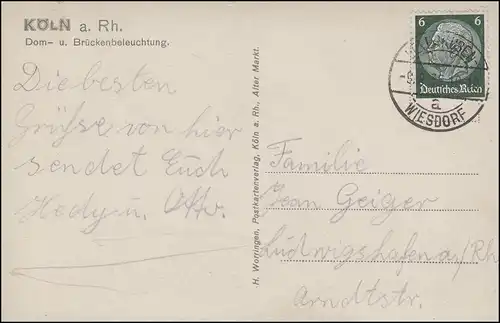 KÖLN a. Rh.
Dom- u. Brückenbeleuchtung.
Die besten
Grüsse von hier
sendet Euch
Hedy u. Otto.
H. Worringen, Postkartenverlag, Köln a. Rh., Alter Markt.
6 6
Deutsches Reich
a
WIESDORF
Familie
Jean Geiger
Ludwigshafen a/Rh
Arndtstr.